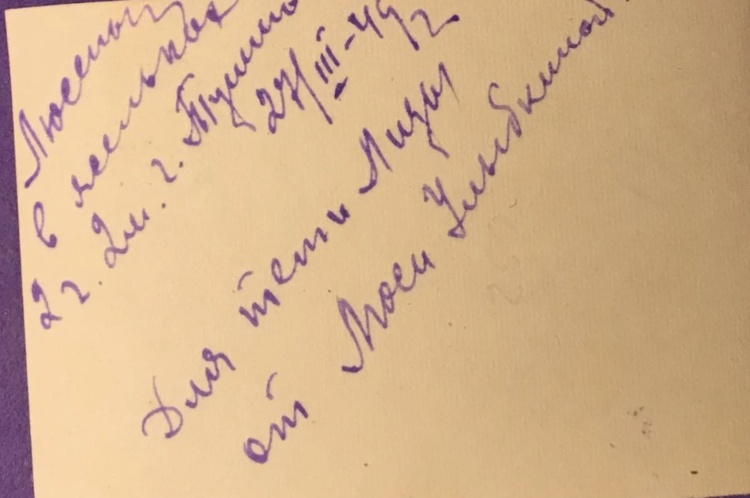 Люсеньк
в яслях
2 г. 2 м. г. Тушино
27/III-49 г.
Для тети Лизы
от Люси Улыбкиной